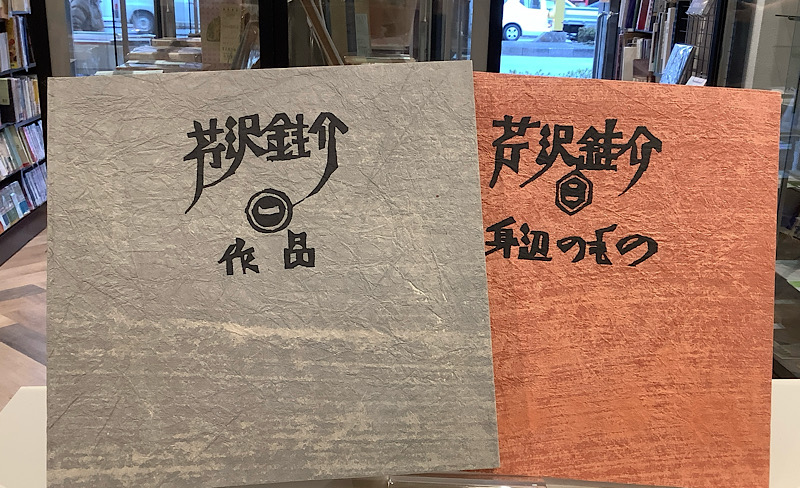 芹沢銈介
一
作品
芹沢銈介
二
身辺のもの